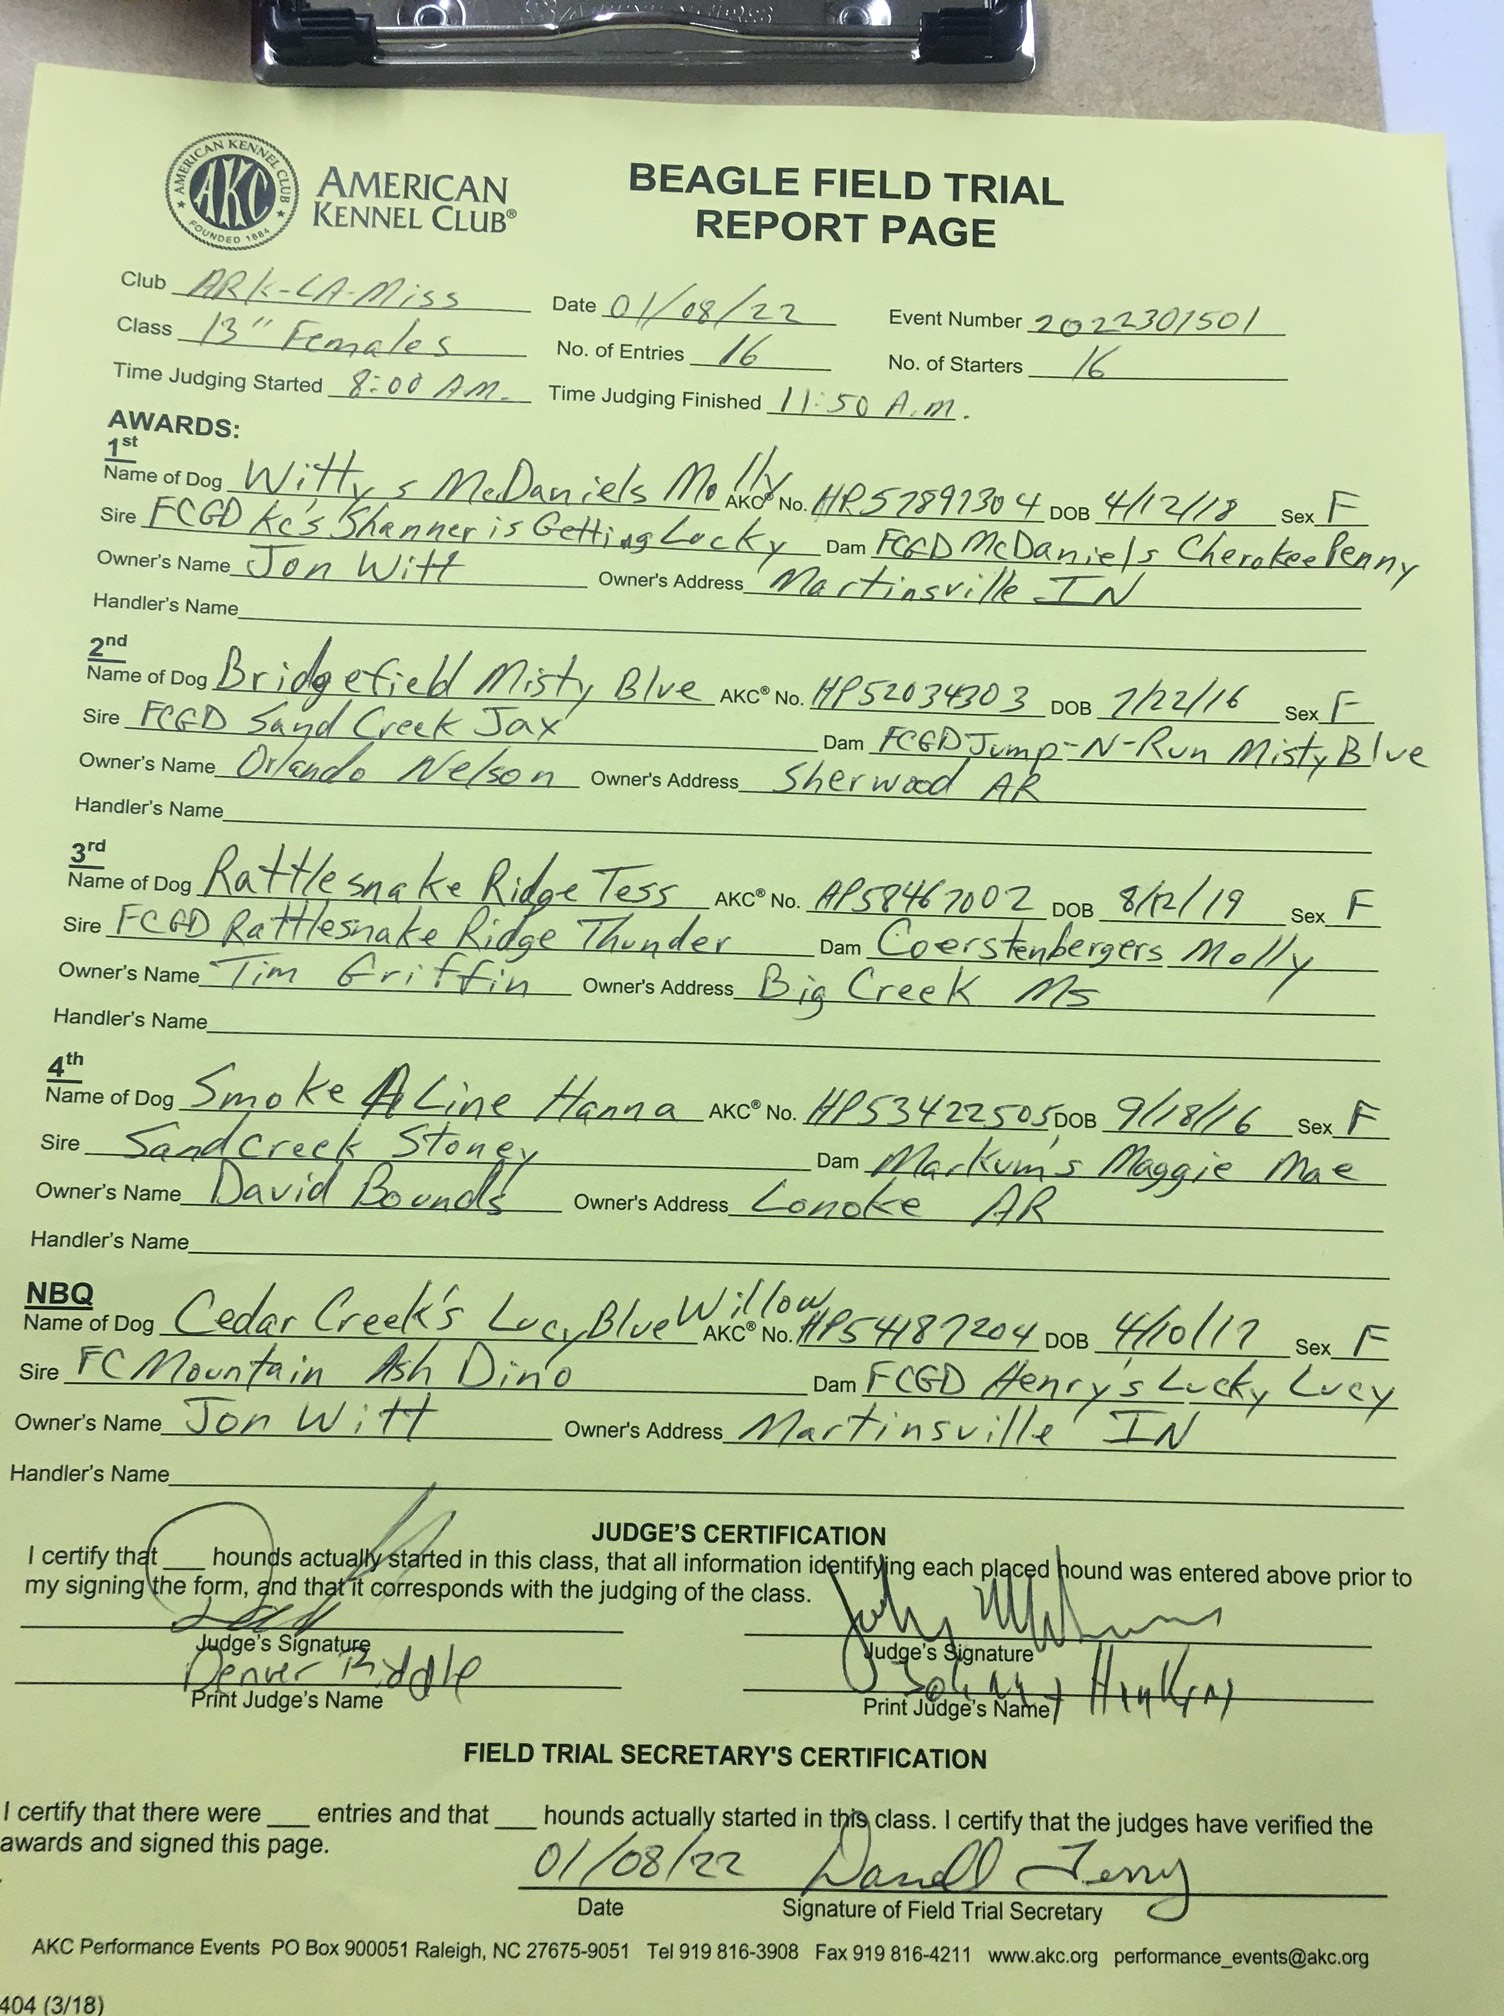 AMERICAN KENNEL CLUB
AKC
FOUNDED 1884
AMERICAN
KENNEL CLUB®
BEAGLE FIELD TRIAL
REPORT PAGE
Club ARK-LA-Miss Date 01/08/22 Event Number 2022301501
Class 13" Females No. of Entries 16 No. of Starters 16
Time Judging Started 8:00 AM. Time Judging Finished 11:50 A.m.
AWARDS:
1st
Name of Dog Witty's McDaniels Molly AKC® No. HP57897304 DOB 4/12/18 Sex F
Sire FCGD Kc's Shanner is Getting Lucky Dam FCGD McDaniels Cherokee Penny
Owner's Name Jon Witt Owner's Address Martinsville IN
Handler's Name
2nd
Name of Dog Bridgefield Misty Blue AKC® No. HP52034303 DOB 7/22/16 Sex F
Sire FCGD Sand Creek Jax Dam FCGD Jump-N-Run Misty Blue
Owner's Name Orlando Nelson Owner's Address Sherwood AR
Handler's Name
3rd
Name of Dog Rattlesnake Ridge Tess AKC® No. HP58467002 DOB 8/12/19 Sex F
Sire FCGD Rattlesnake Ridge Thunder Dam Coerstenbergers Molly
Owner's Name Tim Griffin Owner's Address Big Creek Ms
Handler's Name
4th
Name of Dog Smoke A Line Hanna AKC® No. HP53422505 DOB 9/18/16 Sex F
Sire Sandcreek Stoney Dam Markum's Maggie Mae
Owner's Name David Bounds Owner's Address Lonoke AR
Handler's Name
NBQ
Name of Dog Cedar Creek's Lucy Blue Willow AKC® No. HP54187204 DOB 4/10/17 Sex F
Sire FC Mountain Ash Dino Dam FCGD Henry's Lucky Lucy
Owner's Name Jon Witt Owner's Address Martinsville IN
Handler's Name
JUDGE'S CERTIFICATION
I certify that ___ hounds actually started in this class, that all information identifying each placed hound was entered above prior to
my signing the form, and that it corresponds with the judging of the class.
Judge's Signature Judge's Signature
Denver Riddle
Print Judge's Name Print Judge's Name
FIELD TRIAL SECRETARY'S CERTIFICATION
I certify that there were ___ entries and that ___ hounds actually started in this class. I certify that the judges have verified the
awards and signed this page.
01/08/22 Darrell Terry
Date Signature of Field Trial Secretary
AKC Performance Events PO Box 900051 Raleigh, NC 27675-9051 Tel 919 816-3908 Fax 919 816-4211 www.akc.org performance_events@akc.org
404 (3/18)